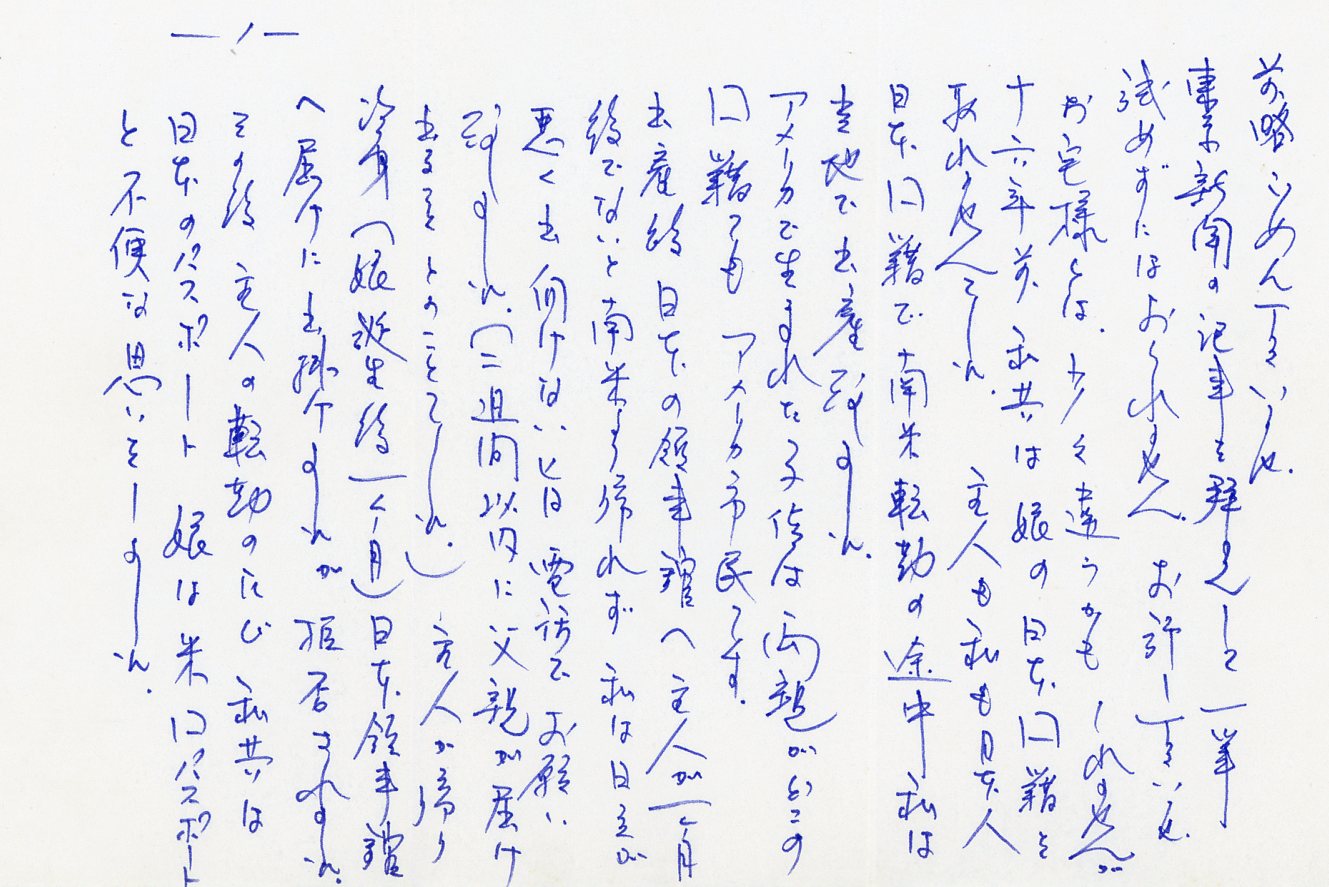 —1—
前略ごめん下さいませ.
東京新聞の記事を拝見して一筆
認めずにはおられません. お許し下さいませ.
お宅様とは、少々違うかも しれませんが
十六年前 私共は 娘の 日本国籍を
取れませんでした. 主人も私も日本人
日本国籍で南米転勤の途中 私は
当地で 出産致しました.
アメリカで生まれた子供は 両親がどこの
国籍でも アメリカ市民です.
出産後 日本の領事館へ 主人が一ヶ月
後でないと南米より帰れず 私は日立が
悪く出向けない旨 電話で お願い
致しました.(二週間以内に父親が届け
出ることとのことでした.) 主人が帰り
次第(娘誕生後一ヶ月)日本領事館
へ届けに出掛けましたが 拒否されました.
その後 主人の転勤のたび 私共は
日本のパスポート 娘は米国パスポート
と不便な思いをしました.